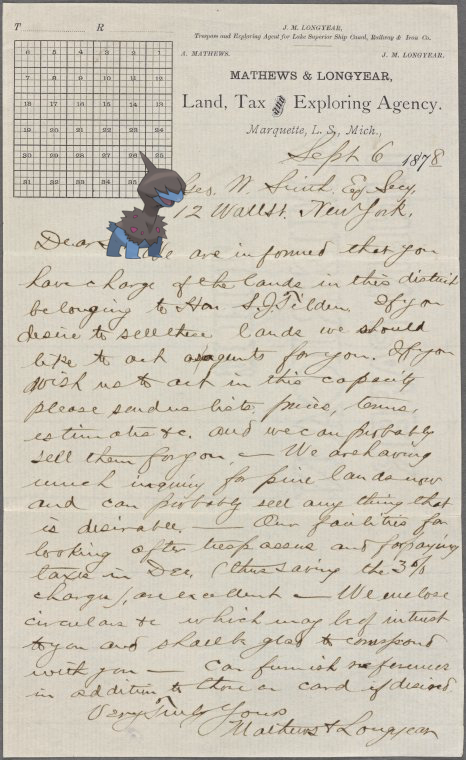 T R
6 5 4 3 2 1
7 8 9 10 11 12
18 17 16 15 14 13
19 20 21 22 23 24
30 29 28 27 26
31 32 33 34 35
J. M. LONGYEAR,
Trespass and Exploring Agent for Lake Superior Ship Canal, Railway & Iron Co.
A. MATHEWS. J. M. LONGYEAR.
MATHEWS & LONGYEAR,
Land, Tax and Exploring Agency.
Marquette, L. S., Mich.,
Sept 6 1878
W. Smith. Esq. Secy.
12 Wall St. New York.
Dear are informed that you
have charge of the lands in this district
belonging to Hon S. J. Tilden. If you
desire to sell these lands we should
like to act as agents for you. If you
wish us to act in this capacity
please send us lists, prices, terms,
estimates &c. and we can probably
sell them for you. — We are having
much inquiry for pine lands now
and can probably sell any thing that
is desirable — Our facilities for
looking after trespasses and for paying
taxes in Dec. (thus saving the 3%
charges), are excellent — We enclose
circulars &c which may be of interest
to you and shall be glad to correspond
with you — Can furnish references
in addition to those on card if desired.
Very Truly Yours
Mathews & Longyear